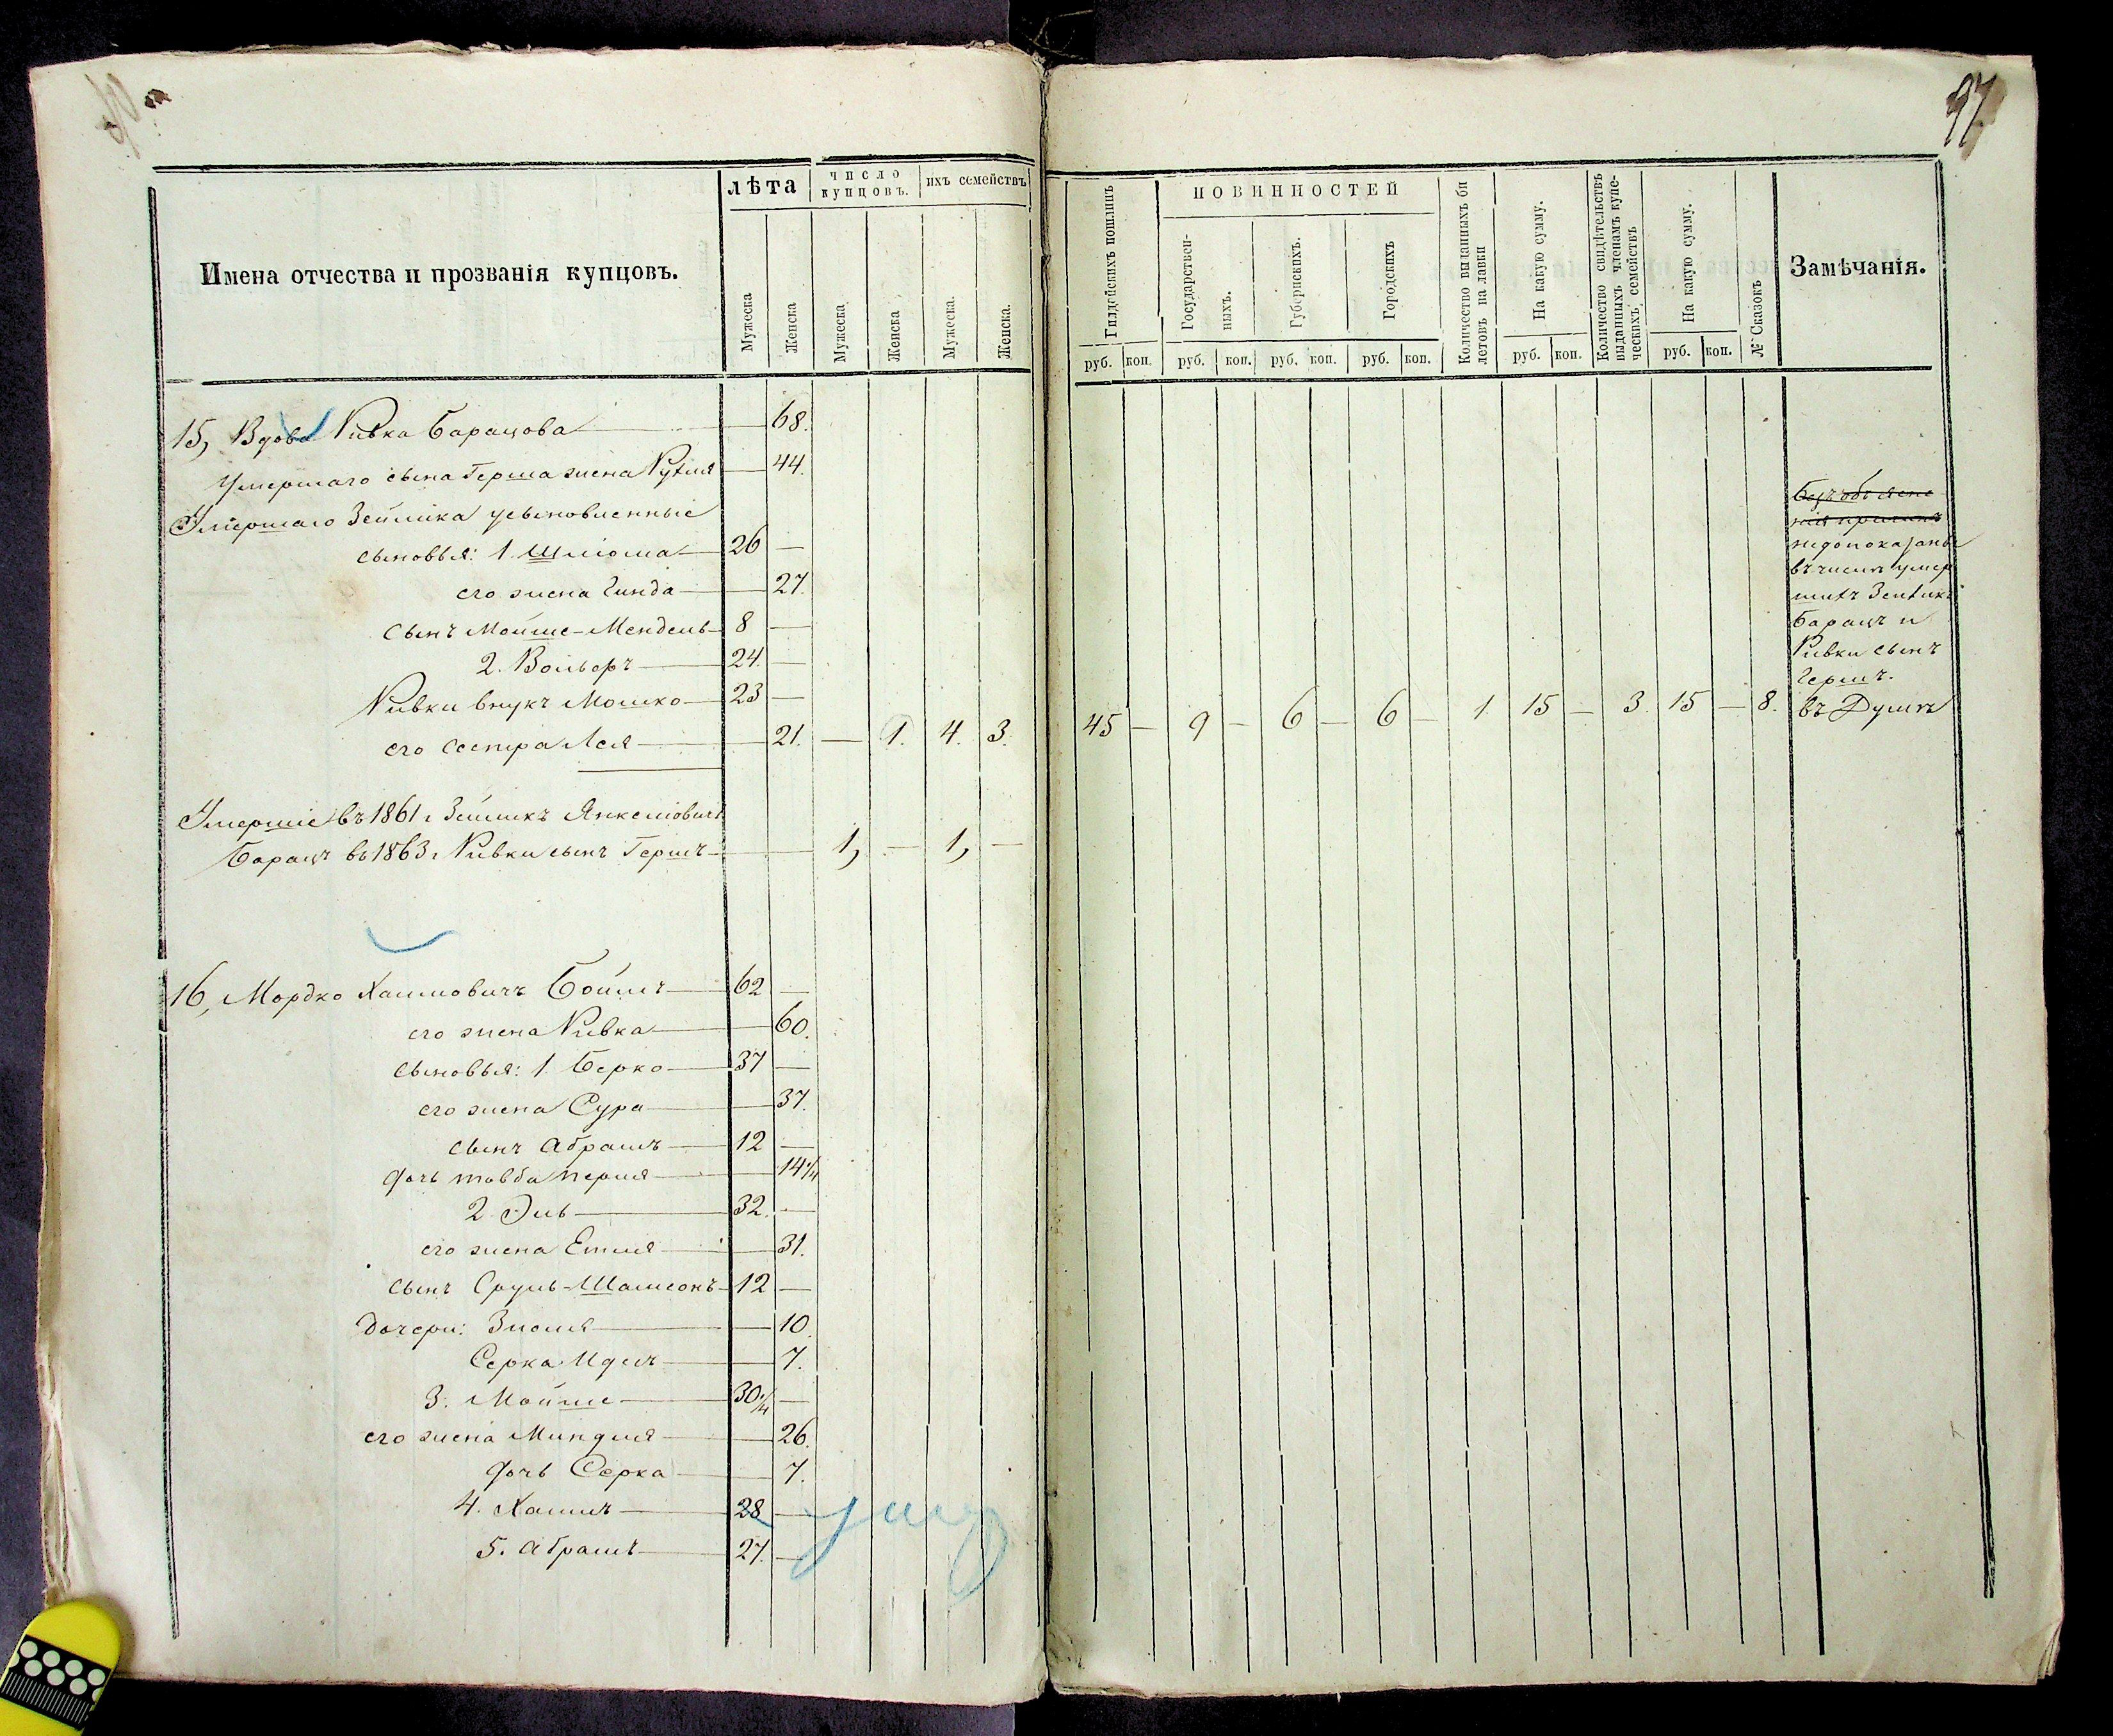 97
Имена отчества и прозванія купцовъ.
лѣта
число купцовъ.
ихъ семействъ
Мужеска
Женска
Мужеска
Женска
Мужеска.
Женска.
Гилдейскихъ пошлинъ
ПОВИННОСТЕЙ
Государствен-
ныхъ.
Губернскихъ.
Городскихъ
Количество выданныхъ би
летовъ на лавки
На какую сумму.
Количество свидѣтельствъ
выданныхъ членамъ купе-
ческихъ семействъ
На какую сумму.
№ Сказокъ
Замѣчанія.
руб. коп. руб. коп. руб. коп. руб. коп. руб. коп. руб. коп.
15, Вдова Ривка Барацова — 68.
Умершаго сына Герша жена Рухля — 44.
Умершаго Зейлика усыновленные
сыновья: 1. Шліома — 26 —
его жена Гинда — 27.
сынъ Мойше-Мендель — 8 —
2. Вольфъ — 24. —
Ривки внукъ Мошко — 23 —
его сестра Лея — 21. — 1. 4. 3. 45 — 9 — 6 — 6 — 1. 15 — 3. 15 — 8.
Безъ объясне
нія причинъ
недопоказаны
въ числѣ умер
шихъ Зейлик
Барацъ и
Ривки сынъ
Гершъ.
въ Думѣ
Умершіе въ 1861 г Зейликъ Янкеліовичъ
Барацъ въ 1863 г Ривки сынъ Гершъ — 1, — 1, —
16, Мордко Хаимовичъ Бойм — 62 —
его жена Ривка — 60.
сыновья: 1. Берко — 37 —
его жена Сура — 37.
сынъ Абрамъ — 12 —
дочь Товба Перля — 14 1/4
2. Эль — 32. —
его жена Етля — 31.
сынъ Сруль-Шамсонъ — 12 —
дочери: — 10.
Серка — 7.
3. Мойше — 30 1/4 —
его жена Миндля — 26.
дочь Серка — 7.
4. Хаимъ — 28 —
5. Абрамъ — 27. —